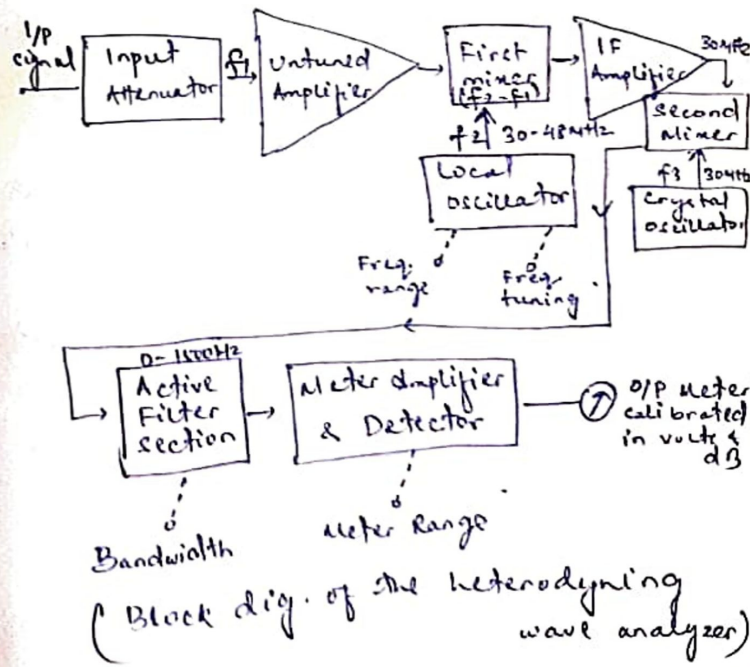 I/P
signal
Input
Attenuator
f1
Untuned
Amplifier
First
mixer
(f2-f1)
IF
Amplifier
30MHz
Second
Mixer
f2 30-48MHz
Local
Oscillator
f3 30MHz
Crystal
Oscillator
Freq.
range
Freq.
tuning
Active
Filter
section
Meter Amplifier
& Detector
O/P Meter
calibrated
in volts &
dB
Bandwidth
Meter Range
(Block dig. of the heterodyning
wave analyzer)